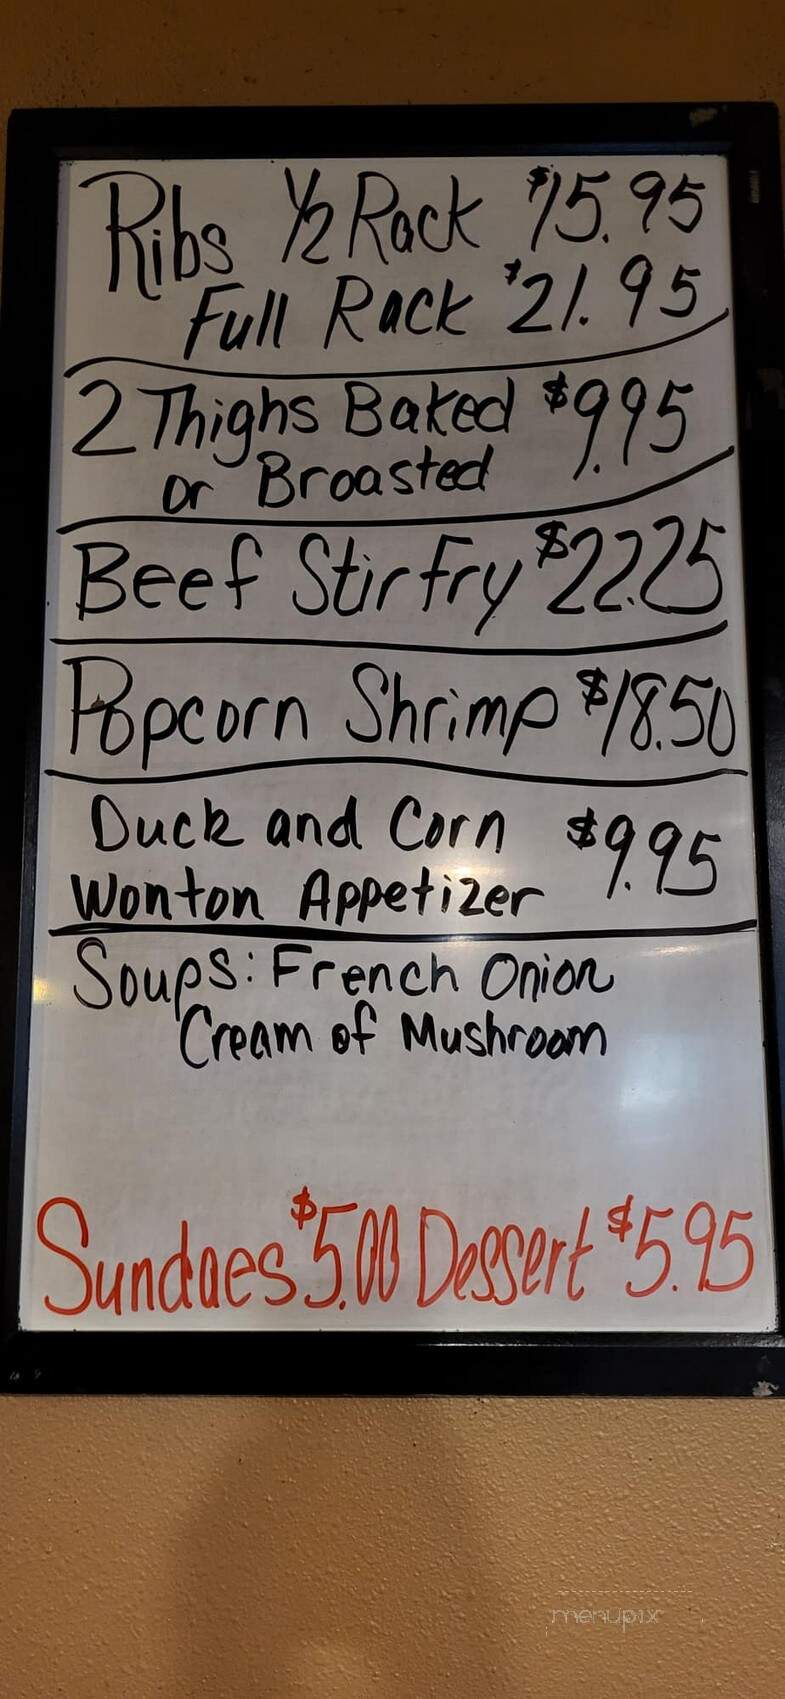 Ribs ½ Rack $15.95
Full Rack $21.95
2 Thighs Baked $9.95
or Broasted
Beef Stir Fry $22.25
Popcorn Shrimp $18.50
Duck and Corn $9.95
Wonton Appetizer
Soups: French Onion
Cream of Mushroom
Sundaes $5.00 Dessert $5.95
menupix